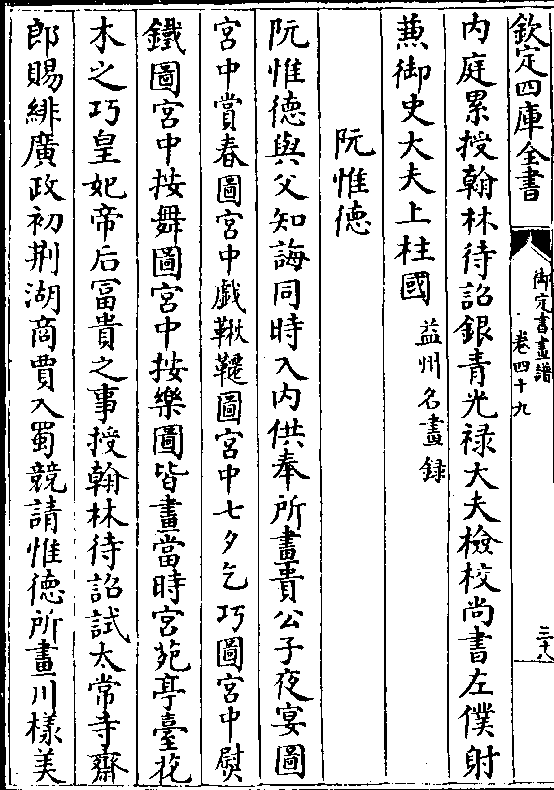 欽定四庫全書
御定書畫譜
卷四十九
三十八
内庭累授翰林待詔銀青光禄大夫檢校尚書左僕射
蒹御史大夫上柱國益州名畫録
阮惟德
阮惟德與父知誨同時入内供奉所畫貴公子夜宴圖
宮中賞春圖宮中戲鞦韆圖宮中七夕乞巧圖宮中熨
鐵圖宮中按舞圖宮中按樂圖皆畫當時宮苑亭臺花
木之巧皇妃帝后冨貴之事授翰林待詔試太常寺齋
郎賜緋廣政初荆湖商賈入蜀競請惟德所畫川樣美